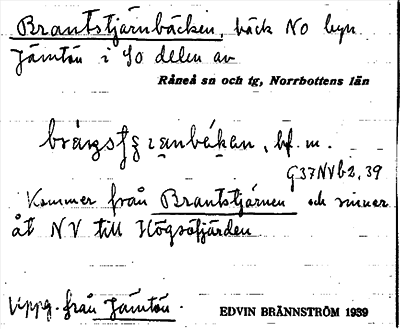 Brantstjärnbäcken, bäck NO byn
Jämtön i SO delen av
Råneå sn och tg, Norrbottens län
bf. m.
G37NVb2,39
Kommer från Brantstjärnen och rinner
åt NV till Högsöfjärden
Uppg. från Jämtön.
EDVIN BRÄNNSTRÖM 1939